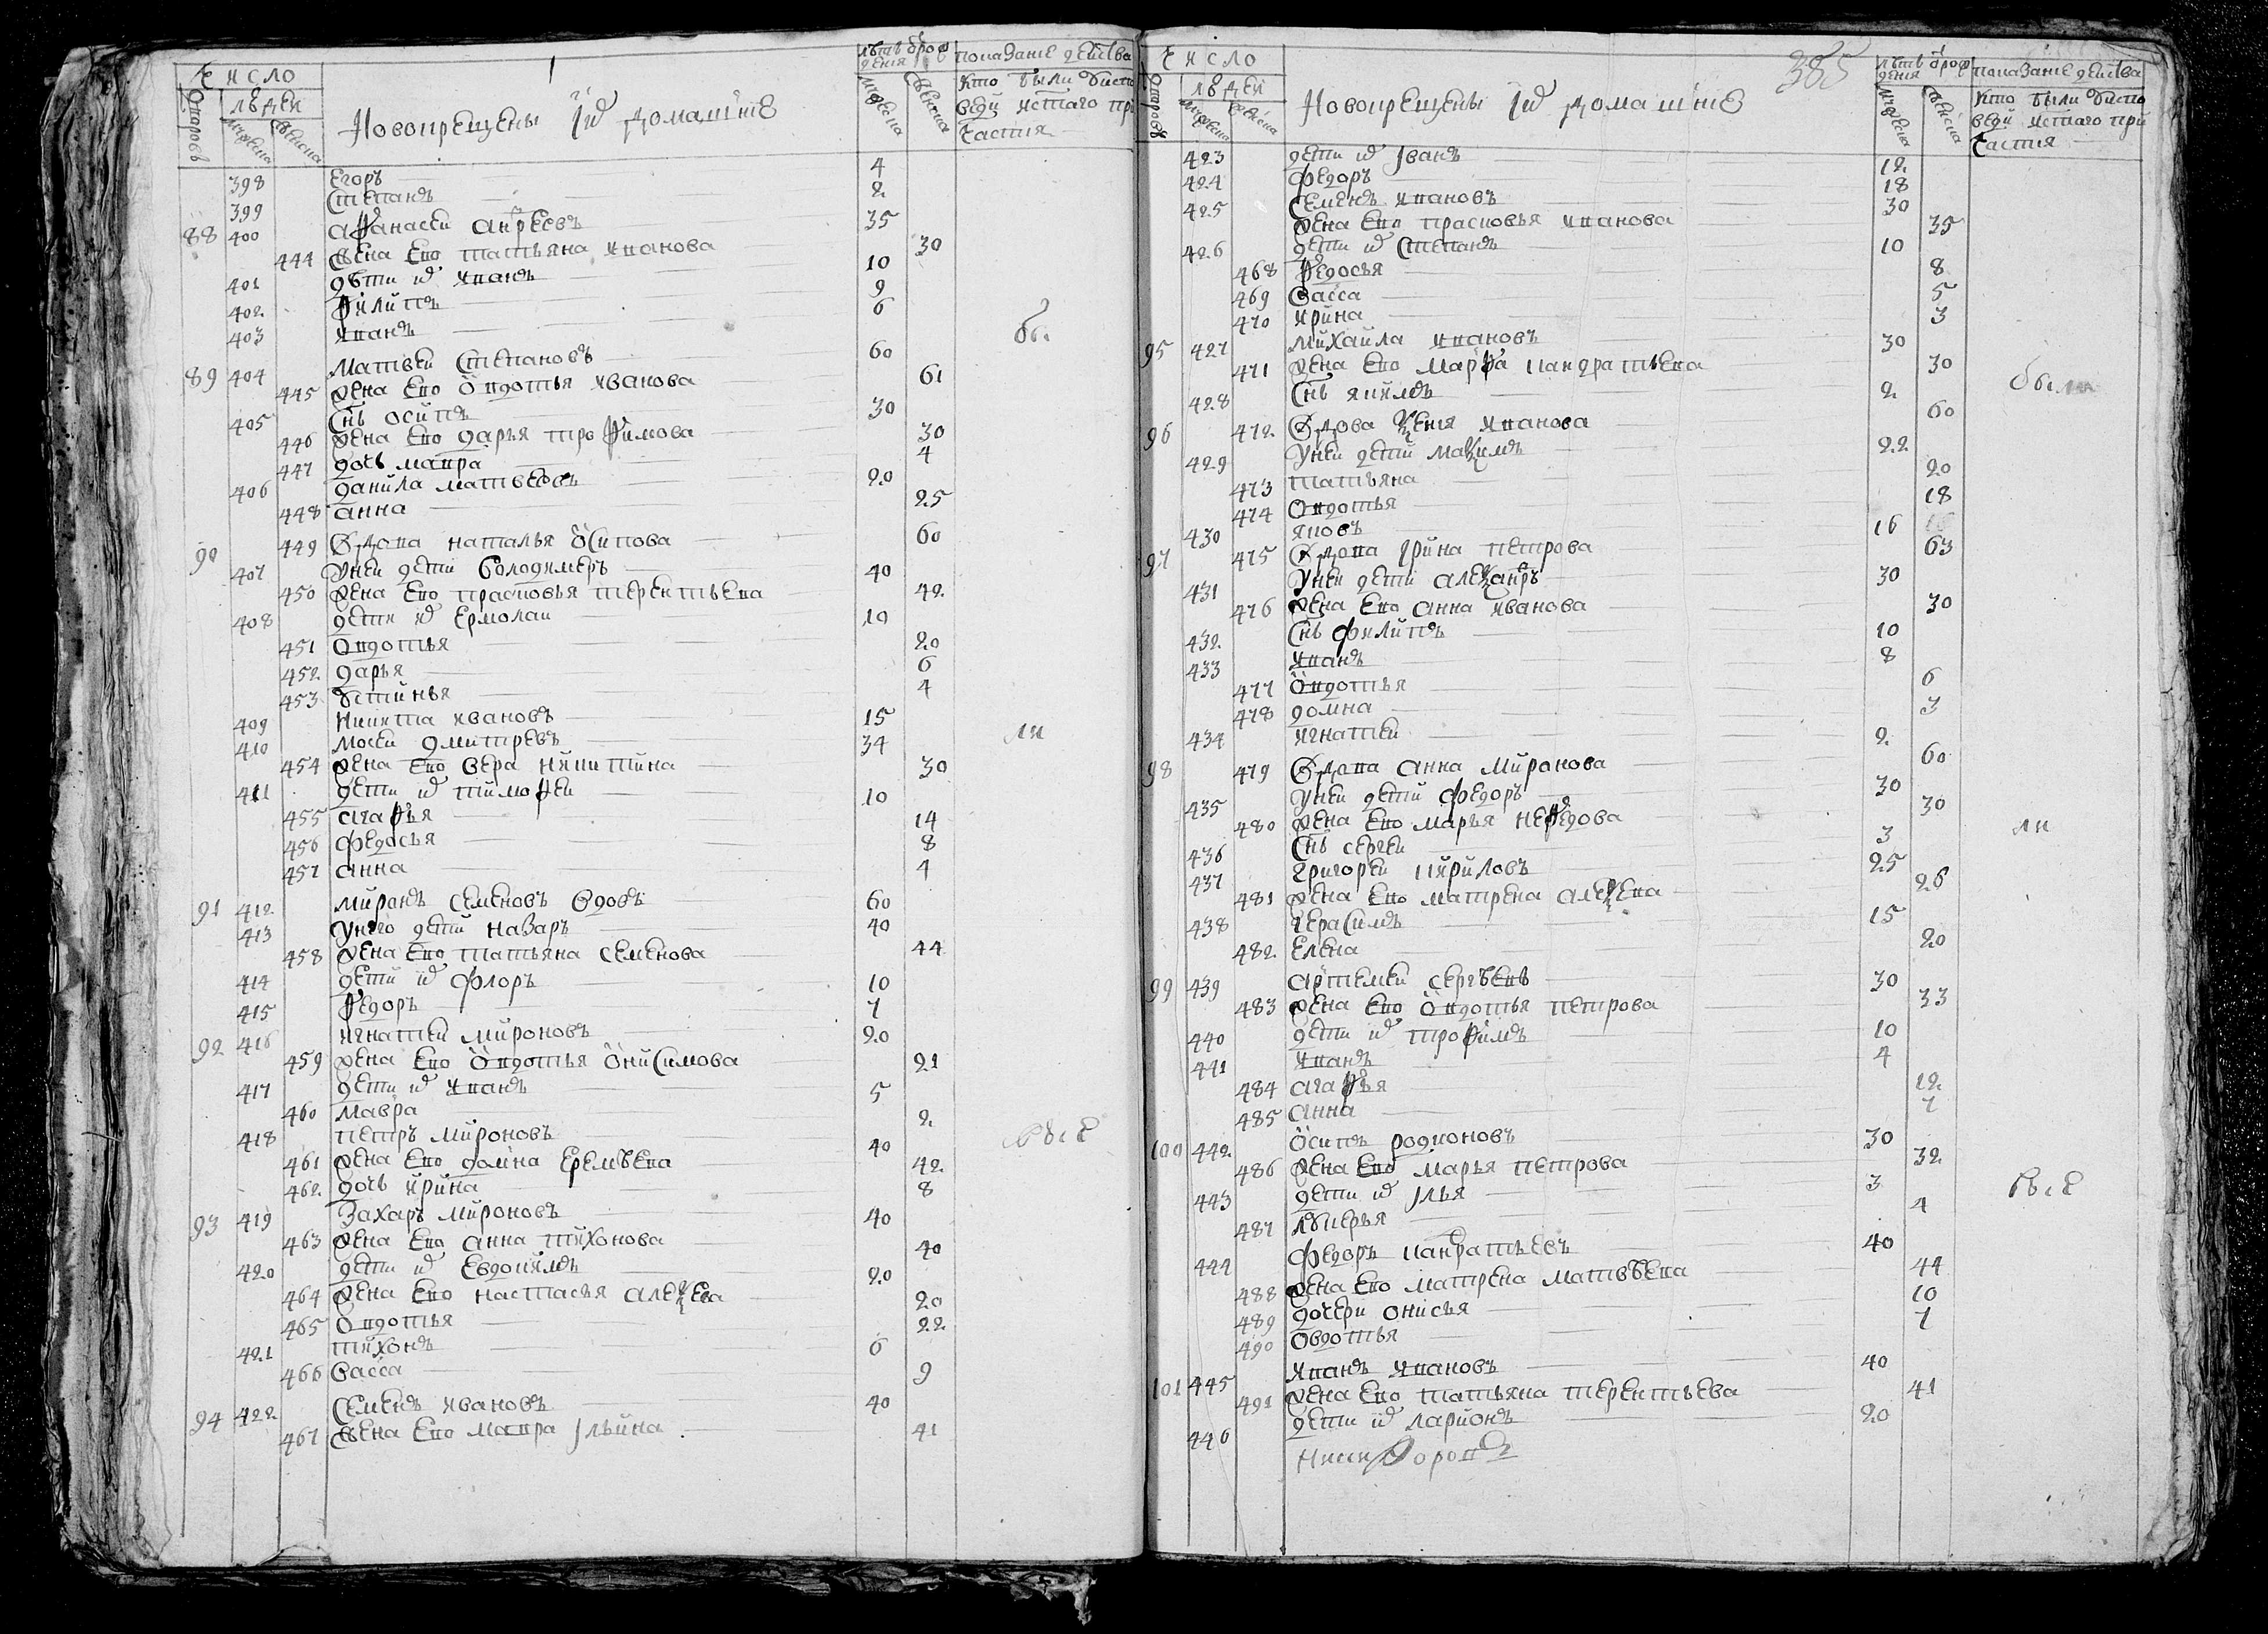 число
людеи
дворовъ
мужеска
женска
Новокрещены и ихъ домашние
лѣтъ ѿрож
дения
мужеска
женска
показание деиства
кто были уиспо
веди истаго при
частия
398 Егоръ 4
399 Степанъ 2
88 400 Афанасеи Андреевъ 35
444 жена ево татьяна иванова 30
401 дѣти ихъ иванъ 10
402 Филипъ 9
403 иванъ 6
89 404 Матвеи Степановъ 60
445 жена ево Овдотья иванова 61
405 Снъ осипъ 30
446 жена ево дарья трофимова 30
447 дочь мавра 4
406 данила матвеевъ 20
448 анна 25
90 449 Вдова наталья Осипова 60
407 Унеи дети володимеръ 40
450 жена ево прасковья терентьева 42
408 дети их Ермолаи 10
451 Овдотья 20
452 дарья 6
453 устинья 4
409 Никита ивановъ 15
410 Мосеи дмитревъ 34
454 жена ево вера никитина 30
411 дети их тимофеи 10
455 агафья 14
456 федосья 8
457 анна 4
91 412 миронъ семеновъ вдовъ 60
413 Унего дети назаръ 40
458 жена ево татьяна семенова 44
414 дети их флоръ 10
415 федоръ 7
92 416 игнатеи мироновъ 20
459 жена ево Овдотья Онисимова 21
417 дети их иванъ 5
460 мавра 2
418 петръ мироновъ 40
461 жена ево домна еремѣева 42
462 дочь ирина 8
93 419 Захаръ мироновъ 40
463 жена ево анна тихонова 40
420 дети их евдокимъ 20
464 жена ево настасья алексева 20
465 Овдотья 22
421 тихонъ 6
466 васса 9
94 422 Семенъ ивановъ 40
467 жена ево мавра ильина 41
бы
ли
все
385
число
людеи
дворовъ
мужеска
женска
Новокрещены и ихъ домашние
лѣтъ ѿрож
дения
мужеска
женска
показание деиства
кто были уиспо
веди истаго при
частия
423 дети их Иванъ 12
424 федоръ 18
425 Семенъ ивановъ 30
жена ево прасковья иванова 35
426 дети их Степанъ 10
468 федосья 8
469 васса 5
470 ирина 3
95 427 михаила ивановъ 30
471 жена ево марфа кандратьева 30
428 Снъ якимъ 2
96 472 Вдова ксения иванова 60
429 Унеи дети максимъ 22
473 татьяна 20
474 Овдотья 18
430 яковъ 16
97 475 Вдова Ирина петрова 63
431 Унеи дети александръ 30
476 жена ево анна иванова 30
432 Снъ филипъ 10
433 иванъ 8
477 Овдотья 6
478 домна 3
434 игнатеи 2
98 479 Вдова анна миронова 60
435 Унеи дети федоръ 30
480 жена ево марья нефедова 30
436 Снъ сергеи 3
437 григореи кириловъ 25
481 жена ево матрена алексева 26
438 герасимъ 15
482 елена 20
99 439 артемеи сергѣевъ 30
483 жена ево Овдотья петрова 33
440 дети их трофимъ 10
441 иванъ 4
484 агафья 12
485 анна 7
100 442 Осипъ родионовъ 30
486 жена ево марья петрова 32
443 дети их Илья 3
487 лукерья 4
444 федоръ кандратьевъ 40
488 жена ево матрена матвѣева 44
489 дочери онисья 10
490 Овдотья 7
101 445 иванъ ивановъ 40
491 жена ево татьяна терентьева 41
446 дети их ларионъ 20
были
ли
все
Никифоровъ